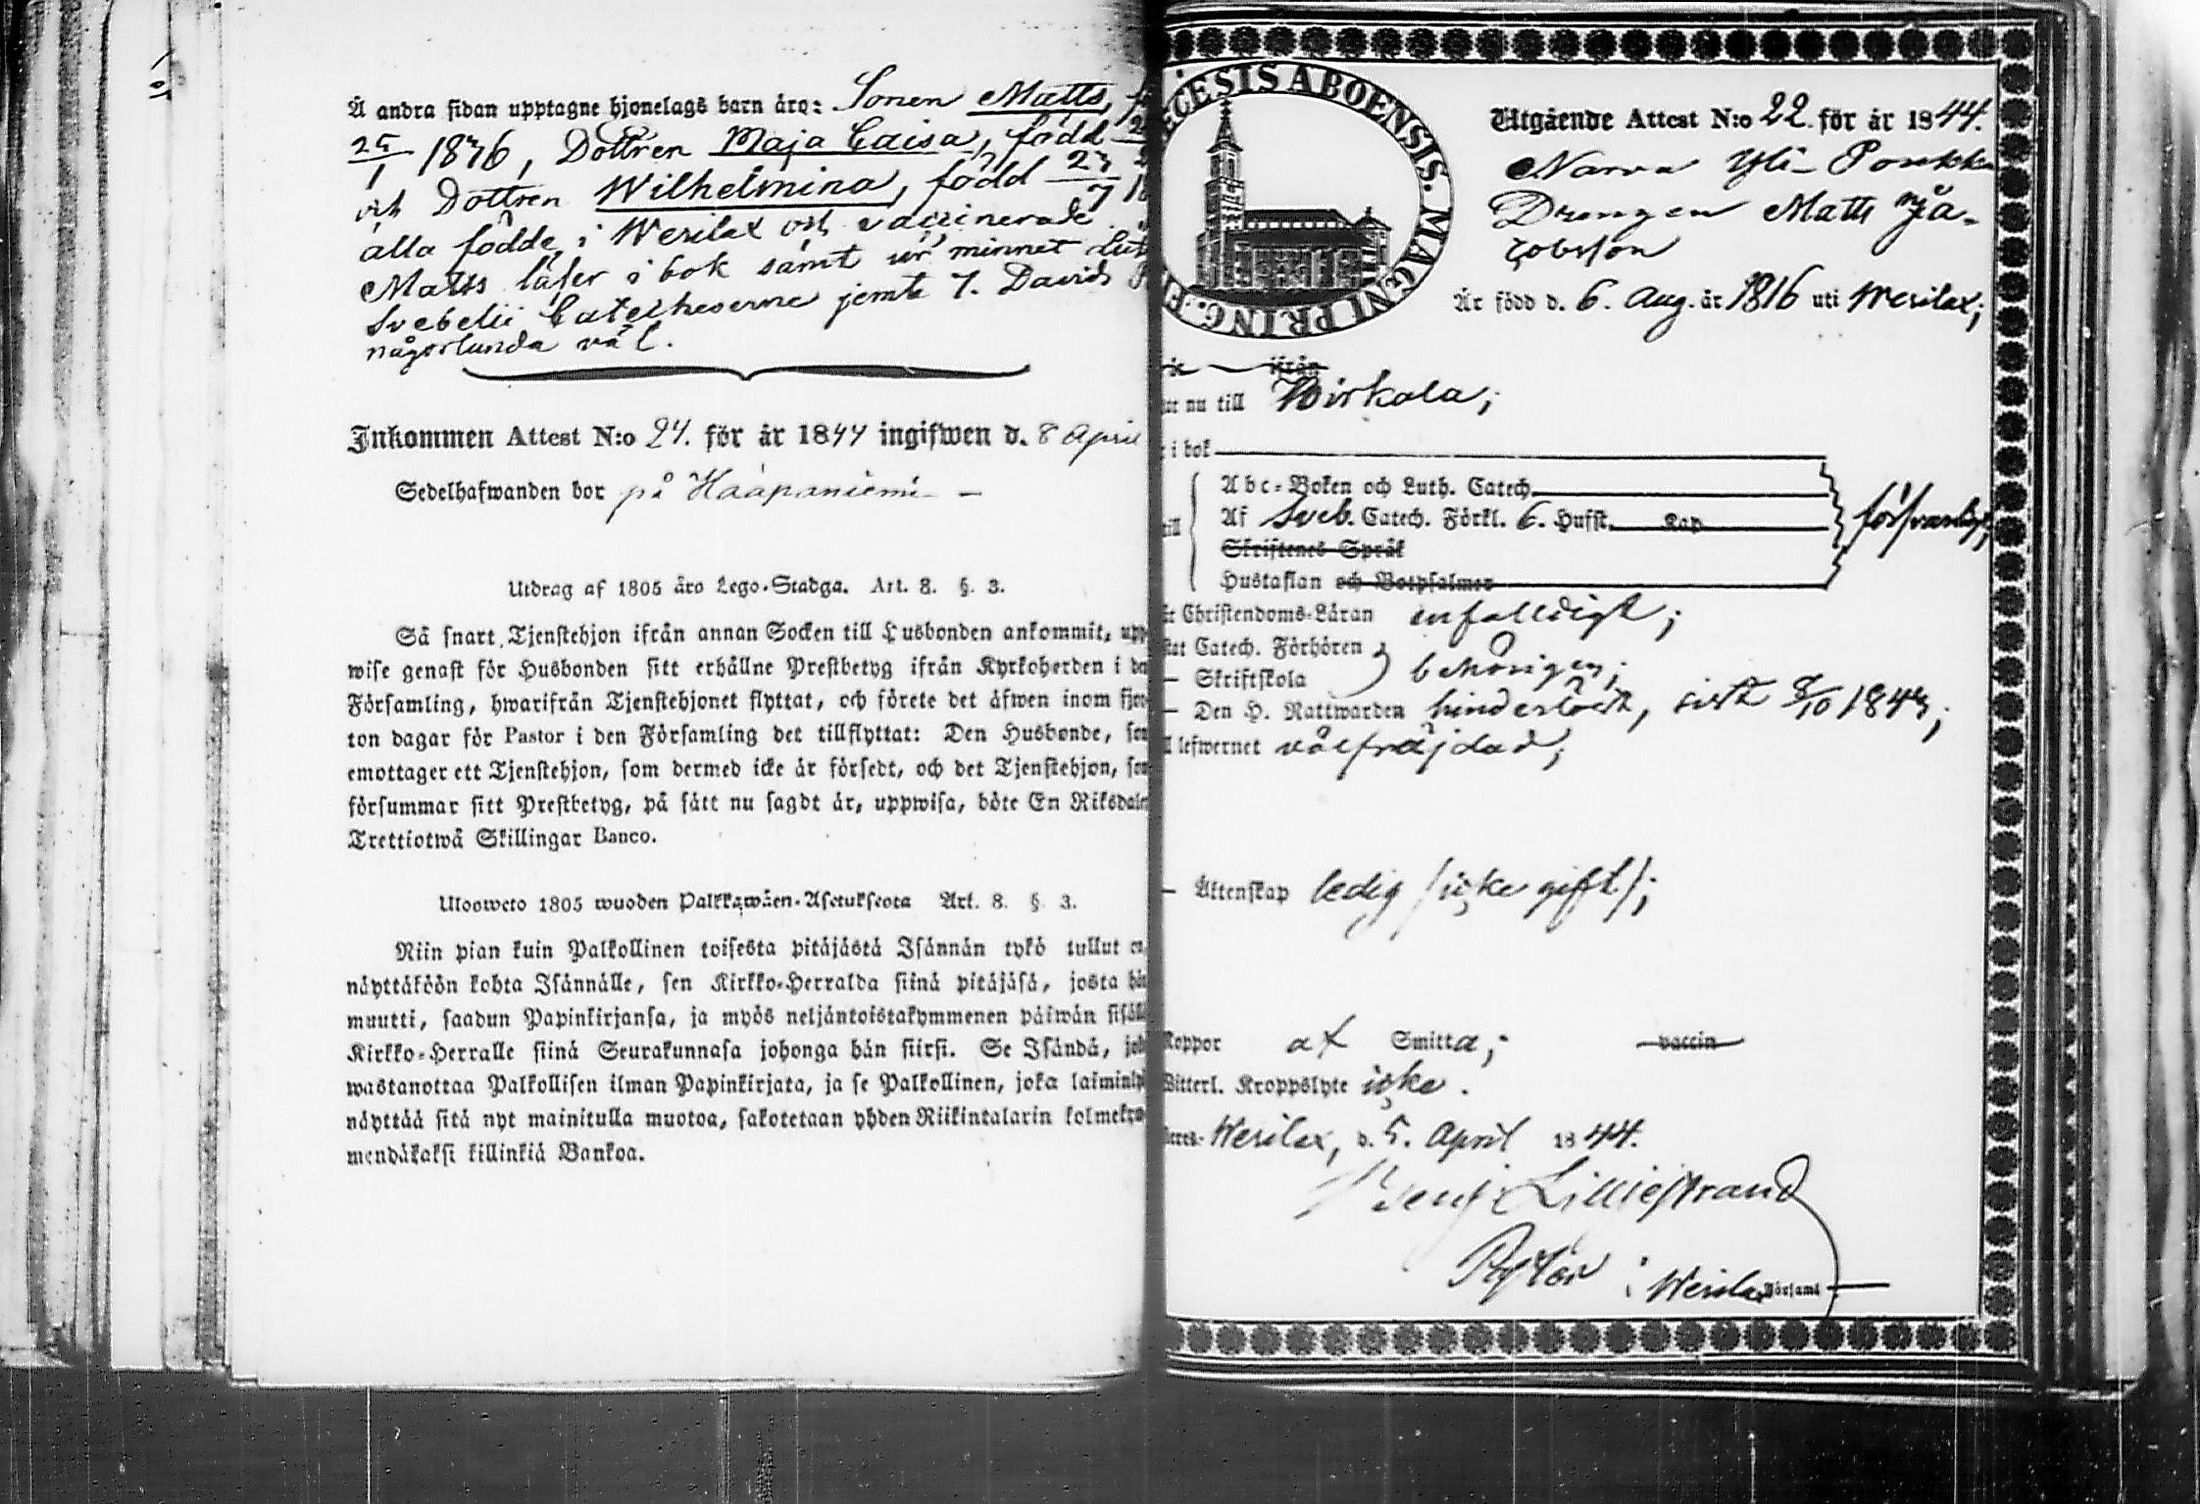 Å andra sidan upptagne hjonelags barn äro: Sonen Matts,
25/1 1836, Dottren Maja Caisa, född
och Dottren Wilhelmina, född 27/7
alla födde i Wesilax och vaccinerade
Matts läser i bok samt ur minnet
Svebelii Catecheserne jemte 7. Davids
någorlunda väl.
Inkommen Attest N:o 24. för år 1844 ingifwen d. 8 April
Sedelhafwanden bor på Haapaniemi
Utdrag af 1805 åro Lego-Stadga. Art. 8. §. 3.
Så snart Tjenstehjon ifrån annan Socken till Husbonden ankommit, upp
wise genast för Husbonden sitt erhållne Prestbetyg ifrån Kyrkoherden i den
Församling, hwarifrån Tjenstehjonet flyttat, och förete det äfwen inom fjor
ton dagar för Pastor i den Församling det tillflyttat: Den Husbonde, som
emottager ett Tjenstehjon, som dermed icke är försedt, och det Tjenstehjon, som
försummar sitt Prestbetyg, på sätt nu sagdt är, uppwisa, böte En Riksdaler
Trettiotwå Skillingar Banco.
Uloosweto 1805 wuoden Palkkawäen-Asetuksesta Art. 8. § 3.
Niin pian kuin Palkollinen toisesta pitäjästä Isännän tykö tullut on,
näyttäköön kohta Isännälle, sen Kirkko-Herralda siinä pitäjäsä, josta hän
muutti, saadun Papinkirjansa, ja myös neljäntoistakymmenen päiwän sisällä
Kirkko-Herralle siinä Seurakunnasa johonga hän siirsi. Se Isändä, joka
wastanottaa Palkollisen ilman Papinkirjata, ja se Palkollinen, joka laiminlyö
näyttää sitä nyt mainitulla muotoa, sakotetaan yhden Riikintalarin kolmekym
mendäkaksi killinkiä Bankoa.
ECESIS ABOENSIS. MAGNI PRINC.
Utgående Attest N:o 22. för år 1844.
Narva Yli-Poukka
Drengen Matts Ja-
cobsson
Är född d. 6. Aug. år 1816 uti Wesilax;
ifrån
nu till Wirkala;
i bok
Abc-Boken och Luth. Catech.
Af Sveb. Catech. Förkl. 6. Hufst. Kap försvarligt;
Skriftenes Språk
Hustaflan och Botpsalmer
Christendoms-Läran enfalldigt;
Catech. Förhören
— Skriftskola behörigen;
— Den H. Nattwarden hinderlöst, sist 8/10 1843;
lefwernet välfräjdad;
— Äktenskap ledig /icke gift/;
Koppor af Smitta; vaccin
Witterl. Kroppslyte icke.
Wesilax, d. 5. April 1844.
Benj. Lilliestrand
Pastor i Wesilax Församl